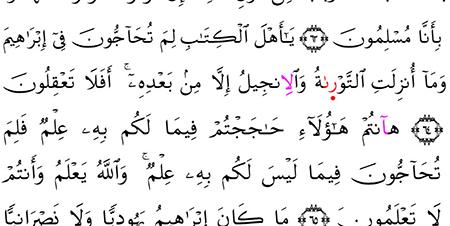 بِأَنَّا مُسْلِمُونَ ۝ يَـٰٓأَهْلَ ٱلْكِتَـٰبِ لِمَ تُحَآجُّونَ فِىٓ إِبْرَٰهِيمَ
وَمَآ أُنزِلَتِ ٱلتَّوْرِىٰةُ وَٱلِانجِيلُ إِلَّا مِنۢ بَعْدِهِۦٓ ۚ أَفَلَا تَعْقِلُونَ
۝٦٤ هَآنتُمْ هَـٰٓؤُلَآءِ حَـٰجَجْتُمْ فِيمَا لَكُم بِهِۦ عِلْمٌ فَلِمَ
تُحَآجُّونَ فِيمَا لَيْسَ لَكُم بِهِۦ عِلْمٌ ۚ وَٱللَّهُ يَعْلَمُ وَأَنتُمْ
لَا تَعْلَمُونَ ۝٦٥ مَا كَانَ إِبْرَٰهِيمُ يَهُودِيًّا وَلَا نَصْرَانِيًّا